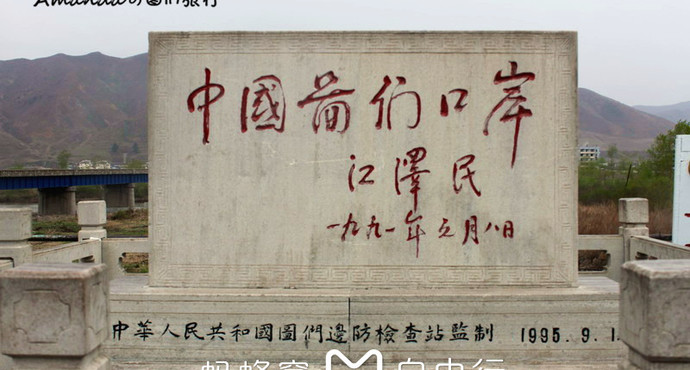 Amandaの圖們旅行
中國啚们口岸
江澤民
一九九一年元月八日
中華人民共和國圖們邊防檢查站監制 1995.9.1
蚂蜂窝 自由行